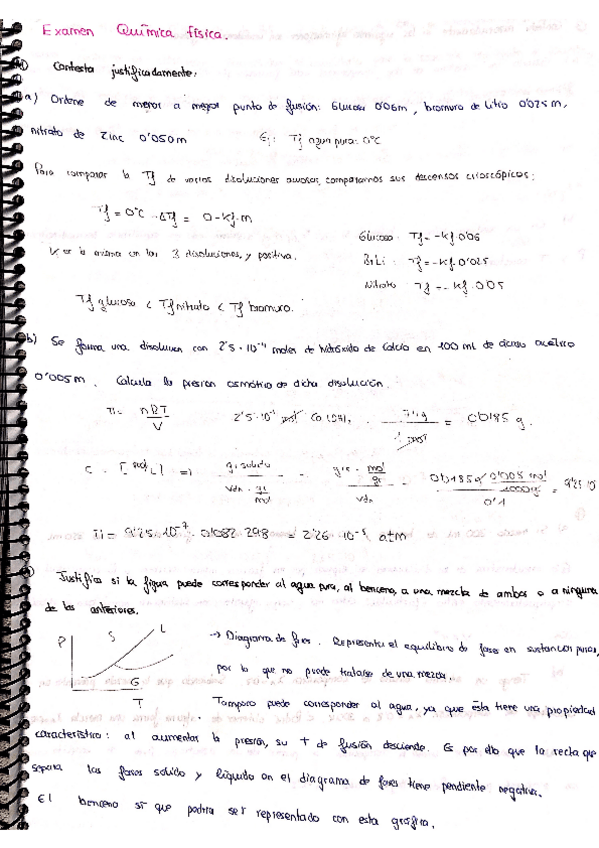 Examen Química física.
Contesta justificadamente:
a) Ordene de menor a mayor punto de fusión: Glucosa 0'06m, bromuro de litio 0'025m,
nitrato de zinc 0'050m Ej: Tf agua pura: 0°C
Para comparar la Tf de varias disoluciones acuosas, comparamos sus descensos crioscópicos:
Tf = 0°C - ΔTf = 0 - Kf·m
Glucosa: Tf = -Kf·0'06
K es la misma en las 3 disoluciones, y positiva.
BrLi: Tf = -Kf·0'025
Nitrato Tf = -Kf·0'05
Tf glucosa < Tf nitrato < Tf bromuro.
b) Se forma una disolución con 2'5·10⁻⁴ moles de hidróxido de calcio en 100 ml de ácido acético
0'005m. Calcula la presión osmótica de dicha disolución.
π = nRT/V 74g / 1 mol = 0'0185 g.
g soluto
0'1
π = 9'25·10⁻⁷ · 0'082 · 298 = 2'26·10⁻⁵ atm
Justifica si la figura puede corresponder al agua pura, al benceno, a una mezcla de ambos o a ninguna
de las anteriores.
P S L
→ Diagrama de fases. Representa el equilibrio de fases en sustancias puras,
por lo que no puede tratarse de una mezcla.
G
T
Tampoco puede corresponder al agua, ya que ésta tiene una propiedad
característica: al aumentar la presión, su T de fusión desciende. Es por ello que la recta que
separa las fases sólido y líquido en el diagrama de fases tiene pendiente negativa.
El benceno sí que podría ser representado con esta gráfica.